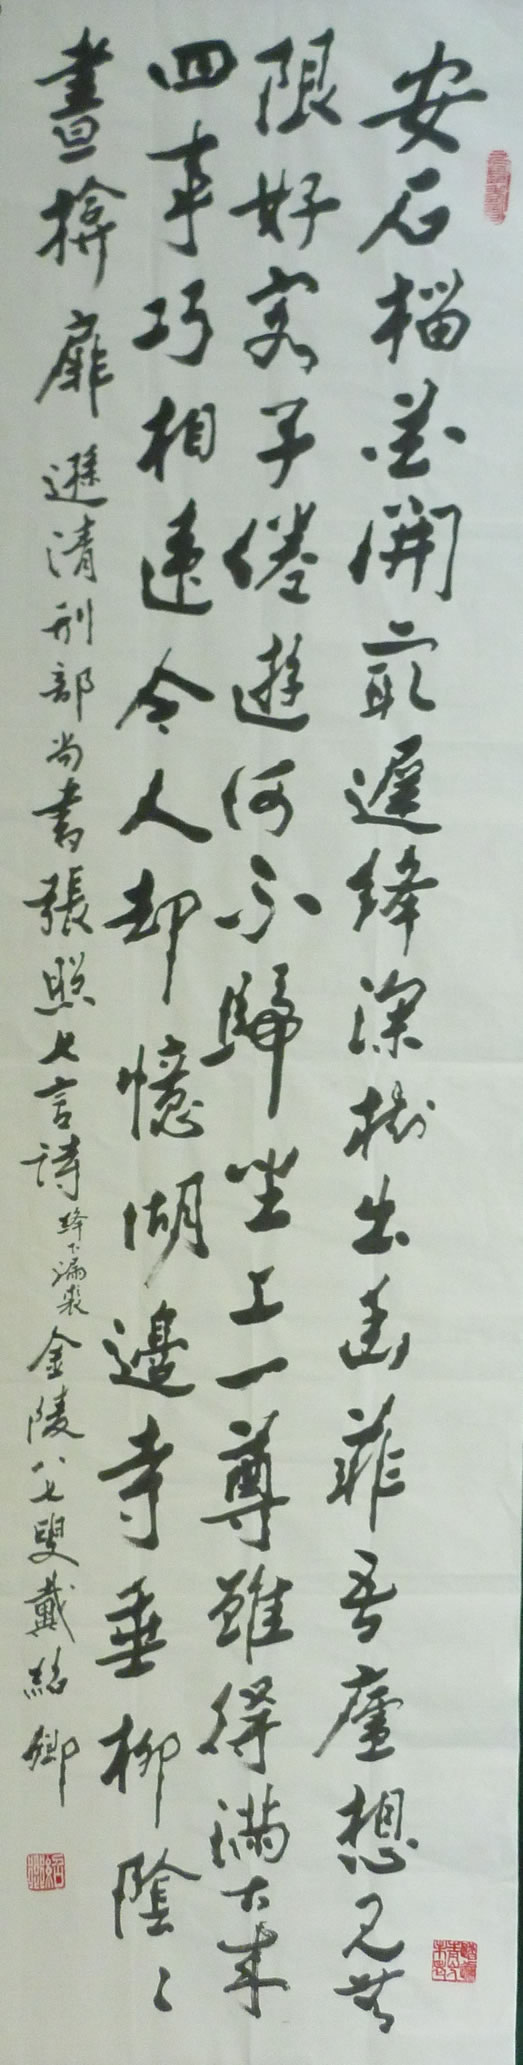 安石榴花開最遲絳深樹出幽菲吾廬想見無
限好客子倦遊何不歸坐上一尊雖得滿古来
四事巧相違令人却憶湖邊寺垂柳陰〻
晝揜扉 遜清刑部尚書張照七言詩 絳下漏裠 金陵八七叟戴紹卿